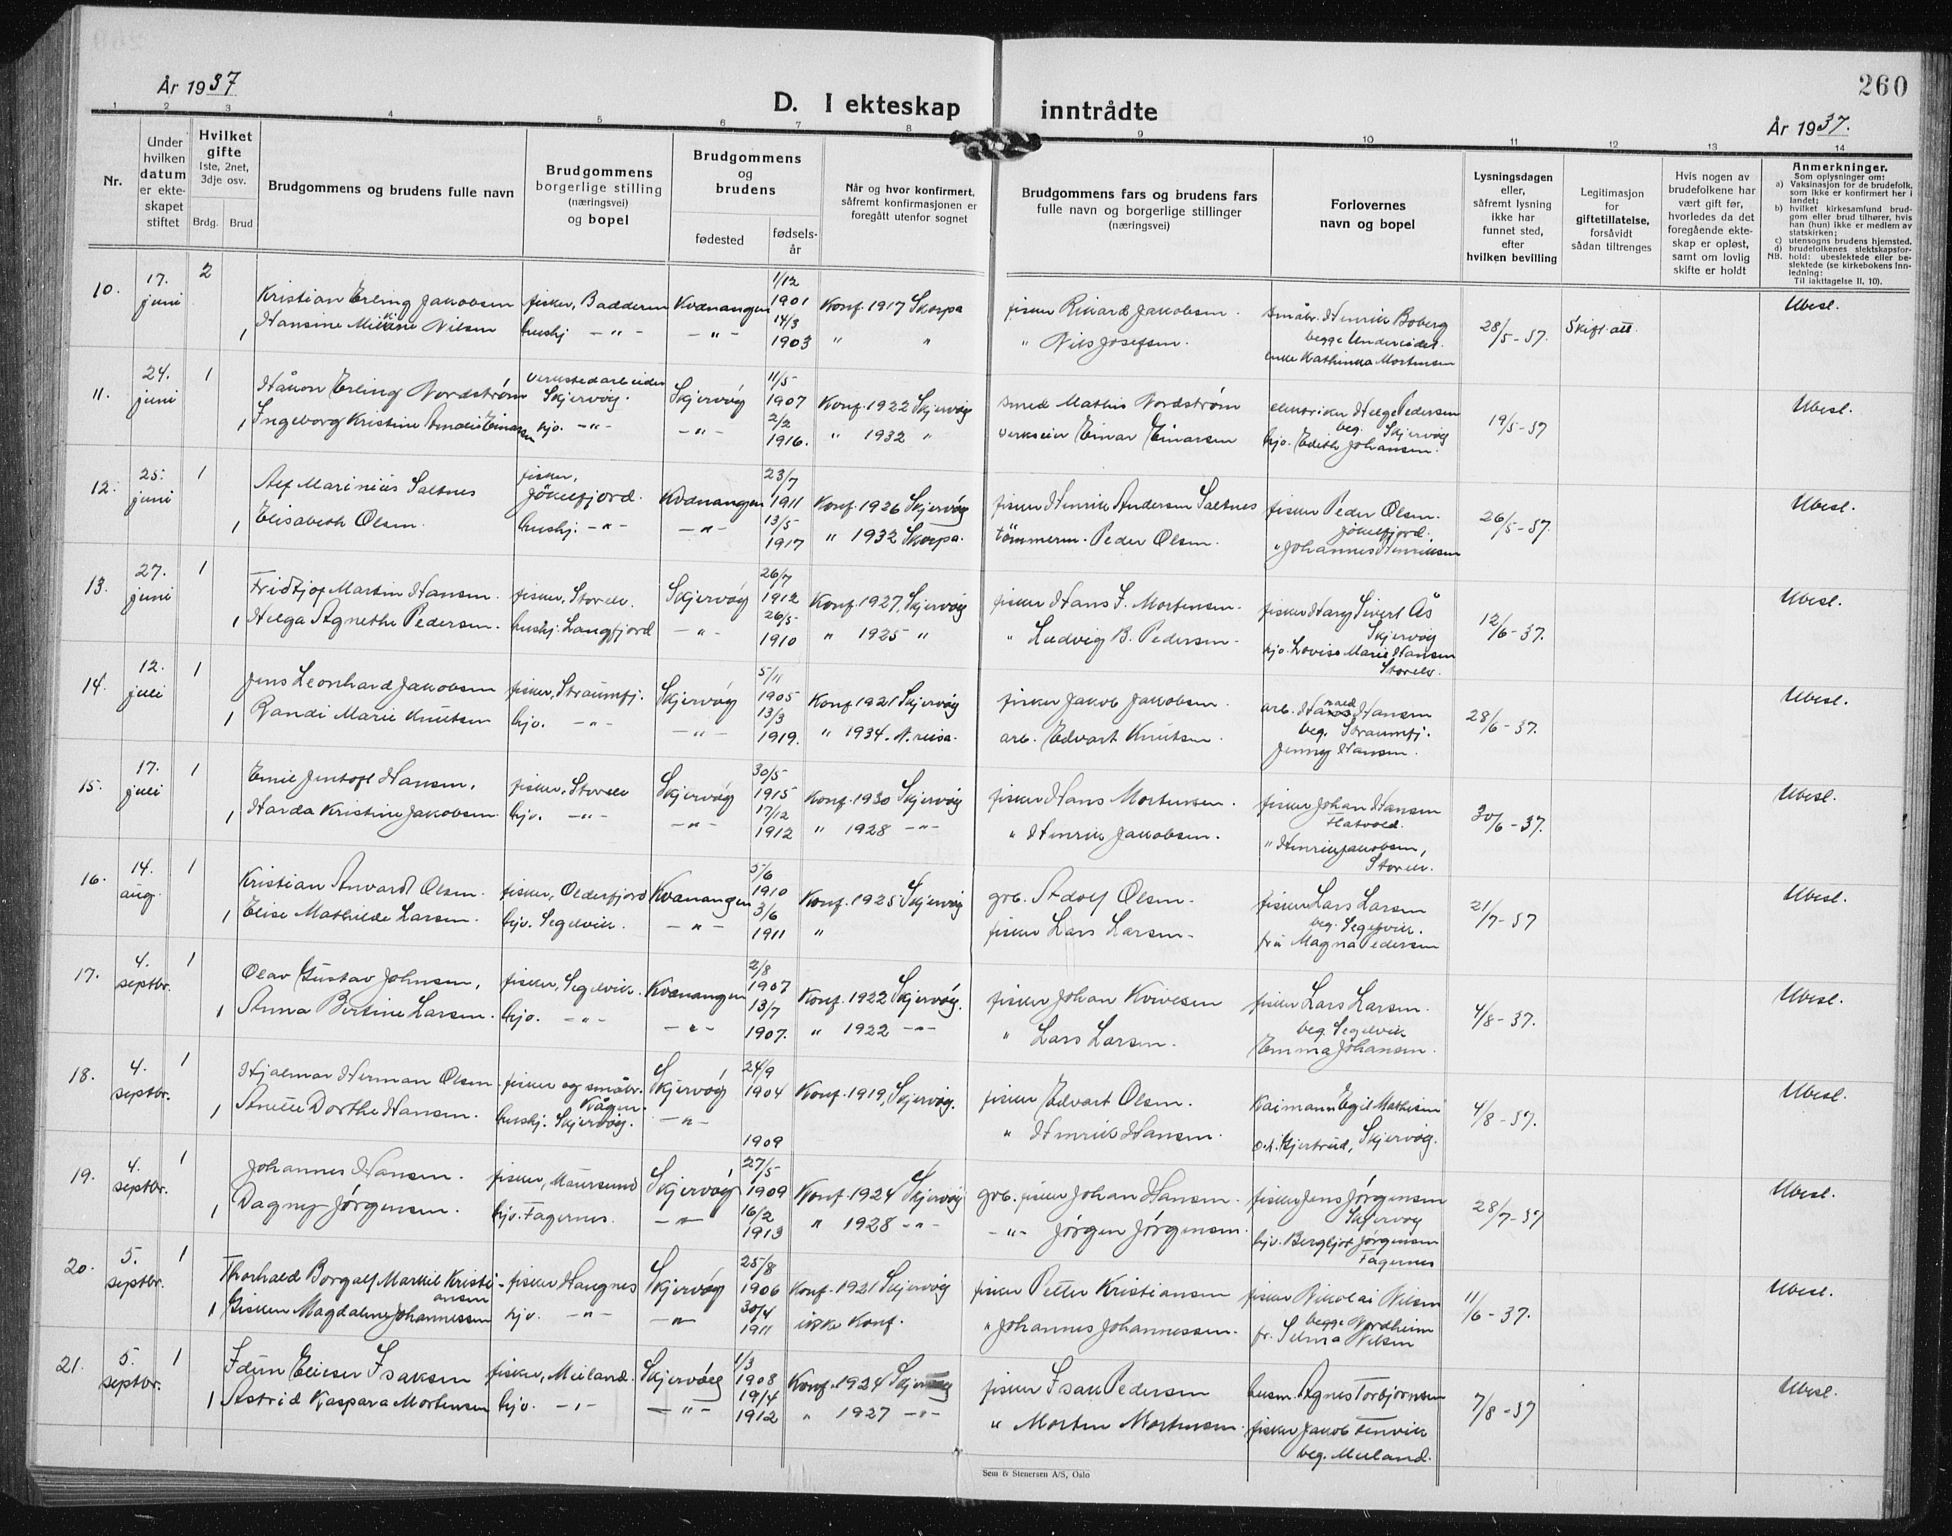 260
År 1937
D. I ekteskap inntrådte
År 1937.
1 2 3 4 5 6 7 8 9 10 11 12 13 14
Nr.
Under hvilken datum er ekteskapet stiftet
Hvilket gifte 1ste, 2net, 3dje osv.
Brdg. Brud
Brudgommens og brudens fulle navn
Brudgommens borgerlige stilling (næringsvei) og bopel
Brudgommens og brudens
fødested
fødselsår
Når og hvor konfirmert, såfremt konfirmasjonen er foregått utenfor sognet
Brudgommens fars og brudens fars fulle navn og borgerlige stillinger (næringsvei)
Forlovernes navn og bopel
Lysningsdagen eller, såfremt lysning ikke har funnet sted, efter hvilken bevilling
Legitimasjon for giftetillatelse, forsåvidt sådan tiltrenges
Hvis nogen av brudefolkene har vært gift før, hvorledes da det foregående ekteskap er opløst, samt om lovlig skifte er holdt
Anmerkninger.
Som oplysninger om:
a) Vaksinasjon for de brudefolk, som ikke er konfirmert her i landet;
b) hvilket kirkesamfund brudgom eller brud tilhører, hvis han (hun) ikke er medlem av statskirken;
c) utensogns brudens hjemsted.
d) brudefolkenes slektskapsforhold: ubeslektede eller beslektede (se kirkebokens Innledning:
NB.
Til iakttagelse II, 10).
10. 17. juni 2 Kristian Erling Jakobsen fisker, Badderen Kvænangen 1/12 1901 Konf. 1917 Skorpa fisker Rikard Jakobsen. småbr. Henrik Boberg 28/5-37 Skift.att Ubesl.
1 Hansine Mikkine Nilsen hushj. -"- -"- 14/3 1903 " " " Nils Josefsen. begge Undereidet. enke Kathinka Mortensen
11. 24. juni 1 Håkon Erling Nordstrøm verkstedarbeider Skjervøy. Skjervøy 11/5 1907 Konf. 1922 Skjervøy smed Mathis Nordstrøm elektriker Helge Pedersen 19/5-37 Ubesl.
1 Ingeborg Kristine Amalie Einarsen hjv. -"- -"- 2/2 1916. " 1932 " verkseier Einar Einarsen beg. Skjervøy hjv. Edith Johansen.
12. 25. juni 1 Alf Marinius Saltnes fisker, Jøkelfjord. Kvænangen 23/7 1911 Konf. 1926 Skjervøy fisker Henrik Andersen Saltnes fisker Peder Olsen. 26/5-37. Ubesl.
1 Elisabeth Olsen. hushj. -"- -"- 13/5 1917 " 1932 Skorpa. tömmerm. Peder Olsen. Jökelfjord. " Johannes Henriksen
13. 27. juni 1 Fridtjof Martin Hansen. fisker, Storelv. Skjervøy 26/7 1912 Konf. 1927, Skjervøy fisker Hans J. Mortensen. fisker Hans Sivert Ås 12/6-37. Ubesl.
1 Helga Agnethe Pedersen. hushj. Langfjord -"- 26/5 1910 " 1925 " " Ludvig B. Pedersen. Skjervøy hjv. Lovise Marie Hansen Storelv.
14. 12. juli 1 Jens Leonhard Jakobsen fisker, Straumfj. Skjervøy 5/11 1905 Konf. 1921 Skjervøy fisker Jakob Jakobsen. arb. Hansen 28/6-37. Ubesl.
1 Randi Marie Knutsen hjv. -"- -"- 13/3 1919. " 1934. N. reisa. arb. Edvart Knutsen. beg. Straumfj. Jenny Hansen.
15. 17. juli 1 Emil Jentoft Hansen, fisker, Storelv Skjervøy 30/5 1915 Konf. 1930 Skjervøy fisker Hans Mortensen. fisker Johan Hansen 30/6-37. Ubesl.
1 Harda Kristine Jakobsen. hjv. -"- -"- 17/12 1912 " 1928 -"- " Henrik Jakobsen. Hatvold. " Henrik Jakobsen, Storelv.
16. 14. aug. 1 Kristian Anvardt Olsen. fisker, Olderfjord Kvænangen 5/6 1910 Konf. 1925 Skjervøy grb. Adolf Olsen. fisker Lars Larsen 21/7-37 Ubesl.
1 Elise Mathilde Larsen. hjv. Segelvik. -"- 3/6 1911 " fisker Lars Larsen. beg. Segelvik. frk Magna Pedersen
17. 4. septbr. 1 Olav Gustav Johnsen, fisker, Segelvik. Kvænangen 2/8 1907 Konf. 1922 Skjervøy. fisker Johan Kvivesen fisker Lars Larsen. 4/8-37. Ubesl.
1 Anna Bertine Larsen. hjv. -"- -"- 13/7 1907. " 1922 -"- " Lars Larsen. beg. Segelvik Emma Johansen.
18. 4. septbr. 1 Hjalmar Herman Olsen. fisker og småbr. Kågen. Skjervøy 24/9 1904 Konf. 1919, Skjervøy. fisker Edvart Olsen. Kaimann Egil Mathisen 4/8-37. Ubesl.
1 Anelie Dorthe Hansen. hushj. Skjervøy. -"- 1909 " Henrik Hansen. Gjertrud, Skjervøy.
19. 4. septbr. 1 Johannes Hansen. fisker, Maursund Skjervøy 27/5 1909 Konf. 1924 Skjervøy grb. fisker Johan Hansen. fisker Jens Jørgensen 28/7-37 Ubesl.
1 Dagny Jørgensen. hjv. Fagernes. -"- 16/2 1913 " 1928 -"- -"- Jørgen Jørgensen. Skjervøy hjv. Bergljot Jørgensen Fagernes
20. 5. septbr. 1 Thorhald Borgalf Markil Kristiansen fisker Haugnes Skjervøy 25/8 1906 Konf. 1921 Skjervøy fisker Petter Kristiansen fisker Nikolai Nilsen 11/6-37. Ubesl.
1 Gisken Magdalene Johannessen hjv. -"- -"- 30/4 1911 ikke Konf. " Johannes Johannessen. begge Nordheim fr. Selma Nilsen
21. 5. septbr. 1 Idun Elieser Isaksen fisker, Meiland. Skjervøy 1/3 1908 Konf. 1924 Skjervøy fisker Isak Pedersen husm. Agnes Torbjørnsen 7/8-37 Ubesl.
1 Astrid Kaspara Mortensen hjv. -"- -"- 19/4 1912 " 1927 -"- " Morten Mortensen. fisker Jakob Tenvik beg. Meiland.
Sem & Stenersen A/S, Oslo